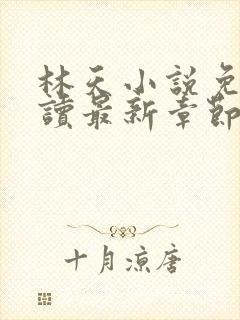 林天小説免
讀最新章節
十月涼唐